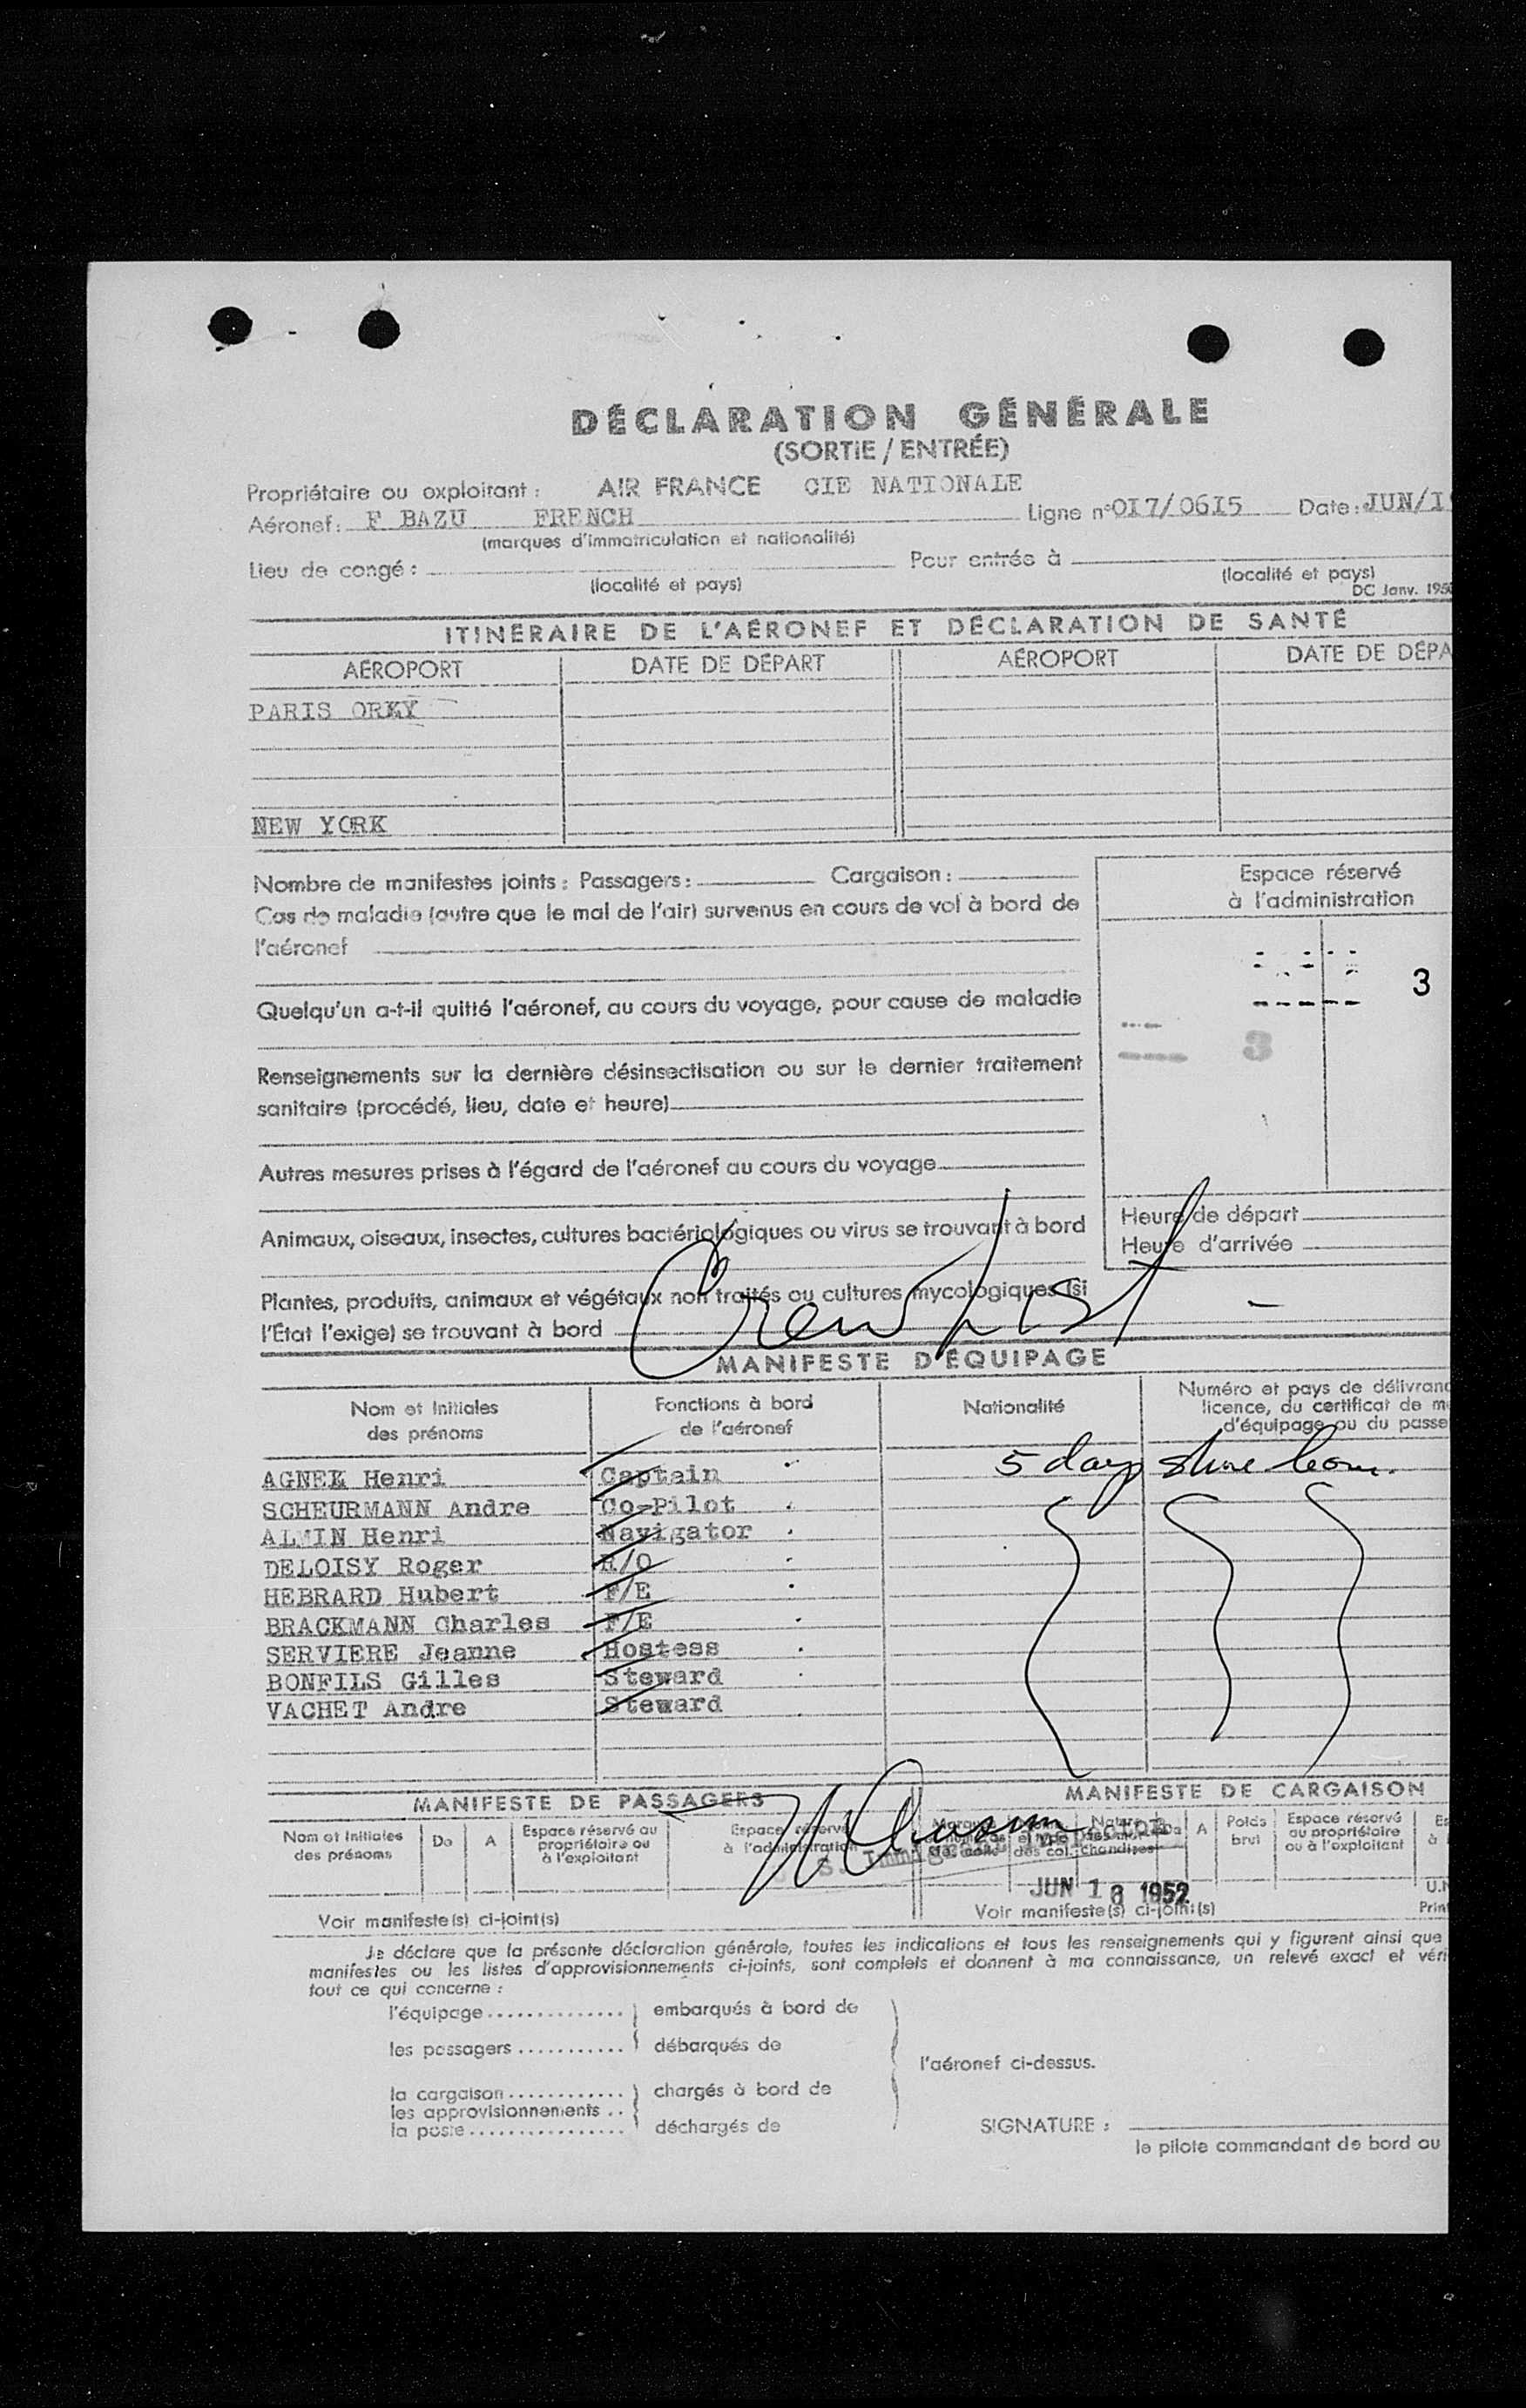 DÉCLARATION GÉNÉRALE
(SORTIE / ENTRÉE)
Propriétaire ou exploitant : AIR FRANCE CIE NATIONALE
Aéronef : F BAZU FRENCH Ligne n° OI7/06I5 Date : JUN/I
(marques d'immatriculation et nationalité)
Lieu de congé : Pour entrée à
(localité et pays) (localité et pays)
DC Janv. 1950
ITINÉRAIRE DE L'AÉRONEF ET DÉCLARATION DE SANTÉ
AÉROPORT DATE DE DÉPART AÉROPORT DATE DE DÉPA
PARIS ORKY
NEW YORK
Nombre de manifestes joints : Passagers : Cargaison :
Espace réservé
à l'administration
Cas de maladie (autre que le mal de l'air) survenus en cours de vol à bord de
l'aéronef
3
Quelqu'un a-t-il quitté l'aéronef, au cours du voyage, pour cause de maladie
3
Renseignements sur la dernière désinsectisation ou sur le dernier traitement
sanitaire (procédé, lieu, date et heure)
Autres mesures prises à l'égard de l'aéronef au cours du voyage
Heure de départ
Heure d'arrivée
Animaux, oiseaux, insectes, cultures bactériologiques ou virus se trouvant à bord
Plantes, produits, animaux et végétaux non traités ou cultures mycologiques (si
l'État l'exige) se trouvant à bord
Crew List
MANIFESTE D'ÉQUIPAGE
Nom et Initiales
des prénoms
Fonctions à bord
de l'aéronef
Nationalité
Numéro et pays de délivranc
licence, du certificat de m
d'équipage ou du passe
5 days shore leave.
AGNEK Henri Captain
SCHEURMANN Andre Co-Pilot
ALMIN Henri Navigator
DELOISY Roger R/O
HEBRARD Hubert F/E
BRACKMANN Charles F/E
SERVIERE Jeanne Hostess
BONFILS Gilles Steward
VACHET Andre Steward
MANIFESTE DE PASSAGERS MANIFESTE DE CARGAISON
Nom et Initiales
des prénoms
De A
Espace réservé au
propriétaire ou
à l'exploitant
Espace réservé
à l'administration
Nature
des mar-
chandises
De A
Poids
brut
Espace réservé
au propriétaire
ou à l'exploitant
Es
à
S. Immigrant Inspector
JUN 18 1952
U.N
Voir manifeste(s) ci-joint(s) Voir manifeste(s) ci-joint(s) Prin
Je déclare que la présente déclaration générale, toutes les indications et tous les renseignements qui y figurent ainsi que
manifestes ou les listes d'approvisionnements ci-joints, sont complets et donnent à ma connaissance, un relevé exact et véri
tout ce qui concerne :
l'équipage .............. embarqués à bord de
les passagers ........... débarqués de
l'aéronef ci-dessus.
la cargaison ............ chargés à bord de
les approvisionnements ..
la poste ................ déchargés de
SIGNATURE :
le pilote commandant de bord ou